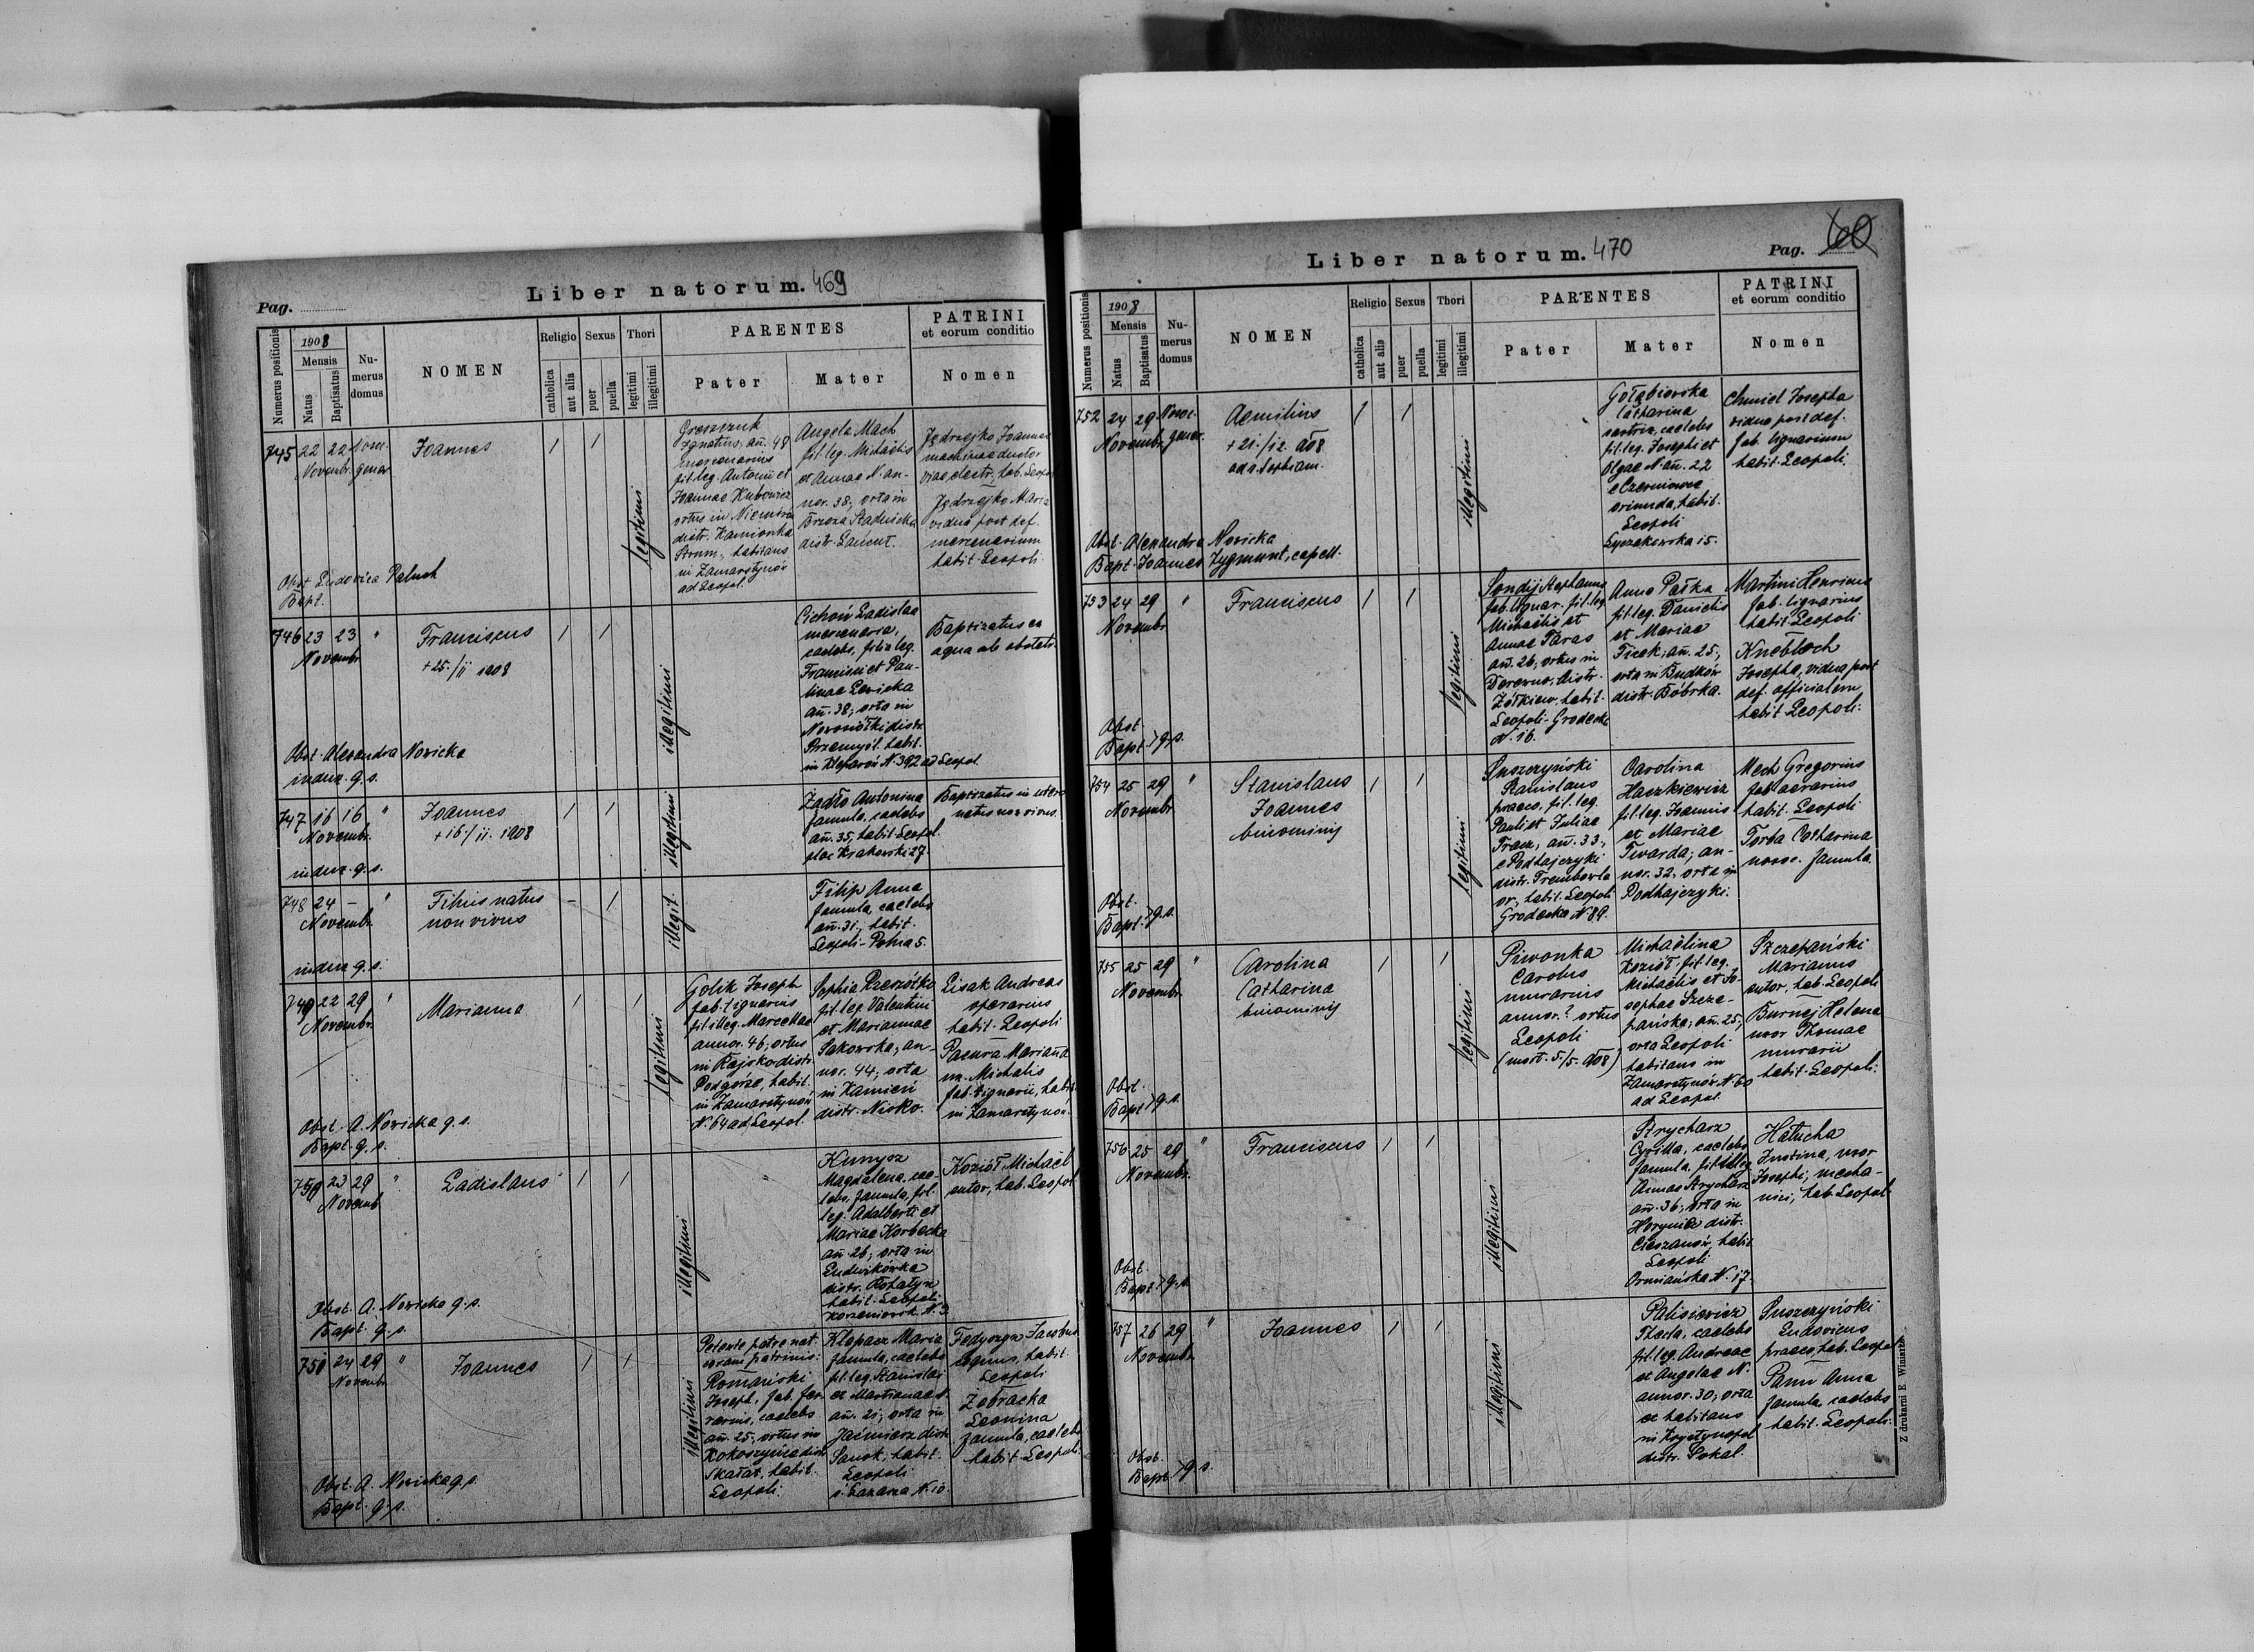 Pag.
Liber natorum. 469
Numerus positionis
1908
Mensis
Natus
Baptisatus
Nu-
merus
domus
NOMEN
Religio
catholica
aut alia
Sexus
puer
puella
Thori
legitimi
illegitimi
PARENTES
Pater
Mater
PATRINI
et eorum conditio
Nomen
745 22 22 Nosoc.
Novembr. gener.
Joannes
legitimi
Ignatius, añ. 48
mercenarius
fil. leg. Antonii et
Joannae Kubowicz
ortus in Niemirów
distr. Kamionka
Strum., habitans
in Zamarstynów
ad Leopol.
Angela Mach
fil. leg. Michaëlis
et Annae N. an-
nor. 38, orta in
Brzoza Stadnicka
distr. Łańcut.
Jędrzejko Joannes
machinae ductor
viae electr., hab. Leopol.
Jędrzejko Maria
vidua post def.
mercenarium
habit. Leopoli.
Obst. Ludovica Paluch
Bapt.
746 23 23 "
Novembr.
Franciscus
+ 25./11 1908
illegitimi
Cichoń Ladislaa
mercenaria,
caelebs, filia leg.
Francisci et Pau-
linae Levicka
añ. 38, orta in
Novosiółki distr.
Przemyśl. habit.
in Kleparów N. 392 ad Leopol.
Baptizatus ex
aqua ab obstetr.
Obst. Alexandra Novicka
indux. q. s.
747 16 16 "
Novembr.
Joannes
+ 16./11. 1908
illegitimi
Żadło Antonina
famula, caelebs
añ. 35, habit. Leopol.
plac Krakowski 27.
Baptizatus in utero
natus non vivus.
indux. q. s.
748 24 - "
Novembr.
Filius natus
non vivus
illegit.
Filip Anna
famula, caelebs
añ. 31, habit.
Leopoli - Polna 5.
indux q. s.
749 22 29 "
Novembr.
Marianna
legitimi
Golik Joseph
fab. lignarius
fil. illeg. Marcellae
annor. 46, ortus
in Rajsko distr.
Podgórze, habit.
in Zamarstynów
N. 64 ad Leopol.
Sophia Pszczółka
fil. leg. Valentini
et Mariannae
Sakowska, an-
nor. 44, orta
in Kamień
distr. Nisko.
Lisak Andreas
operarius
habit. Leopoli
Pasura Marianna
ux. Michalis
fab. lignarii, habit.
in Zamarstynów.
Obst. A. Novicka q. s.
Bapt. q. s.
750 23 29 "
Novemb.
Ladislaus
illegitimi
"
Kunysz
Magdalena, cae-
lebs, famula, fil.
leg. Adalberti et
Mariae Korbecka
añ 26, orta in
Ludwikówka
distr. Rohatyn
habit. Leopoli.
Korzeniowsk. N. 3.
Kozioł Michaël
sutor, hab. Leopol.
Obst. A. Novicka q. s.
Bapt. q. s.
751 24 29 "
Novembr.
Joannes
illegitimi
Petente patre nat.
coram patrinis:
Romański
Joseph, fab. fer-
rarius, caelebs
añ. 25, ortus in
Kokoszyńce distr.
Skałat, habit.
Leopoli.
Klapacz Maria
famula, caelebs
fil. leg. Stanislai
et Mariannae N.
añ. 21, orta in
Jaćmierz distr.
Sanok, habit.
Leopoli
ś. Łazarza N. 10.
Fedyszyn Jacobus
habit.
Leopoli
Żebracka
Leonina
famula, caelebs
habit. Leopoli.
Obst. A. Novicka q. s.
Bapt. q. s.
Liber natorum. 470
Pag. 60
Numerus positionis
1908
Mensis
Natus
Baptisatus
Nu-
merus
domus
NOMEN
Religio
catholica
aut alia
Sexus
puer
puella
Thori
legitimi
illegitimi
PARENTES
Pater
Mater
PATRINI
et eorum conditio
Nomen
752 24 29 Nosoc.
Novembr. gener.
Aemilius
+ 21./12. 908
ad s. Sophiam.
illegitimi
Gołębiowska
Catharina
sartrix, caelebs
fil. leg. Josephi et
Olgae N. añ. 22
e Czerniowce
oriunda, habit.
Leopoli
Łyczakowska 15.
Chmiel Josepha
vidua post def.
fab. lignarium
habit. Leopoli.
Obst. Alexandra Novicka
Bapt. Joannes Zygmunt, capell.
753 24 29 "
Novembr.
Franciscus
legitimi
Sondij Stephanus
fab. lignar. fil. leg.
Michaëlis et
Annae Taras
añ. 26, ortus in
Derewnia distr.
Żółkiew, habit.
Leopoli - Grodecka
N. 16.
Anna Pałka
fil. leg. Danielis
et Mariae
Ficek, añ. 25,
orta in Budków
distr. Bóbrka.
Martini Henricus
fab. lignarius
habit. Leopoli
Knebloch
Josepha, vidua post
def. officialem
habit. Leopoli.
Obst.
Bapt. } q. s.
754 25 29 "
Novembr.
Stanislaus
Joannes
binominis
legitimi
Suszczyński
Stanislaus
praeco, fil. leg.
Pauli et Juliae
Tracz, añ. 33,
e Podhajczyki
distr. Trembowla
or., habit. Leopoli
Grodecka N 89.
Carolina
Haczkiewicz
fil. leg. Joannis
et Mariae
Twarda, an-
nor. 32, orta in
Podhajczyki.
Mech Gregorius
fab. aerarius
habit. Leopoli
Torba Catharina
nosoc. famula
Obst.
Bapt. } q. s.
755 25 29 "
Novembr.
Carolina
Catharina
binominis
legitimi
Piwonka
Carolus
murarius
annor. ? ortus
Leopoli
(mort. 5./5. 908)
Michaëlina
Kozioł, fil. leg.
Michaëlis et Jo-
sephae Szcze-
pańska, añ. 25,
orta Leopoli
habitans in
Zamarstynów N. 60
ad Leopol.
Szczepański
Marianus
sutor, hab. Leopoli
Burnej Helena
uxor Thomae
murarii
habit. Leopoli.
Obst.
Bapt. } q. s.
756 25 29 "
Novembr.
Franciscus
illegitimi
Strycharz
Cyrilla, caelebs
famula, fil. illeg.
Annae Strycharz
añ. 36, orta in
Horyniec distr.
Cieszanów, habit.
Leopoli
Ormiańska N. 17.
Hałucha
Justina, uxor
Josephi, mecha-
nici, hab. Leopol.
Obst.
Bapt. } q. s.
757 26 29 "
Novembr.
Joannes
illegitimi
Palisiewicz
Thecla, caelebs
fil. leg. Andreae
et Angelae N.
annor. 30, orta
et habitans
in Krystynopol
distr. Sokal.
Suszczyński
Ludovicus
praeco, hab. Leopol.
Pann Anna
famula, caelebs
habit. Leopoli.
Obst.
Bapt. } q. s.
Z drukarni E. Winiarza.